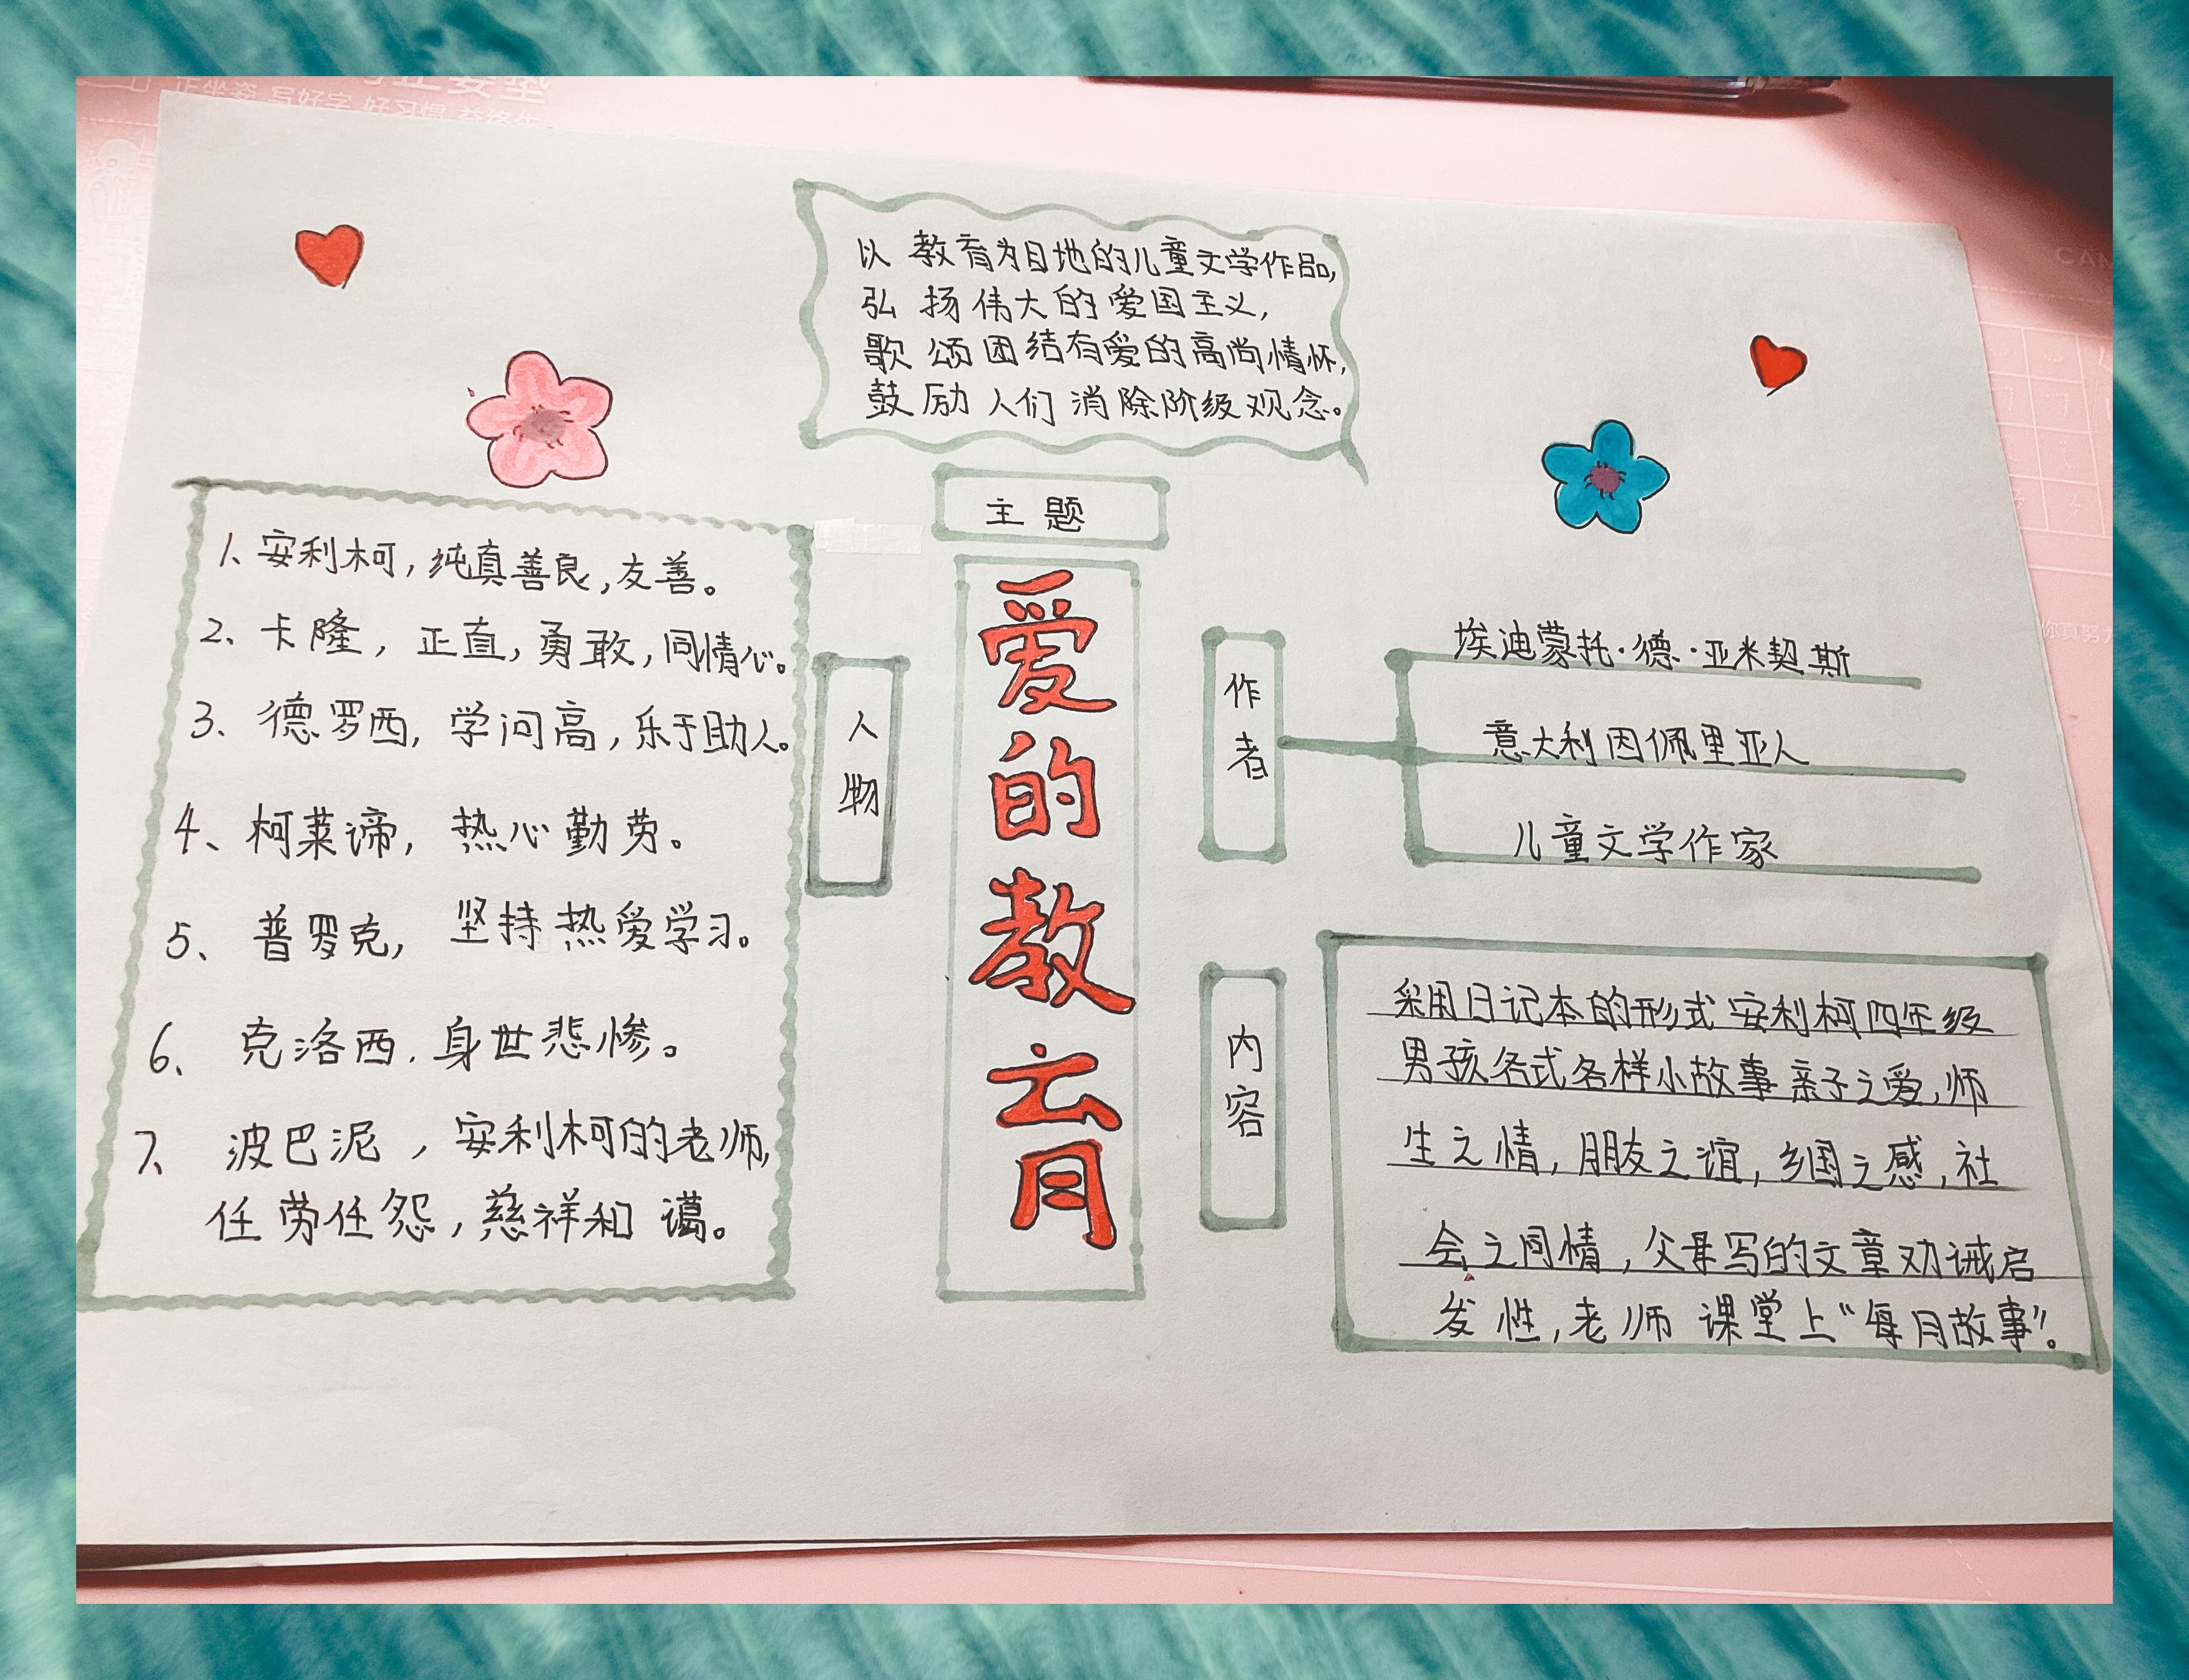 正坐姿 写好字 好习惯 益终生
以教育为目地的儿童文学作品,
弘扬伟大的爱国主义,
歌颂团结有爱的高尚情怀,
鼓励人们消除阶级观念。
主题
爱的教育
人物
1、安利柯,纯真善良,友善。
2、卡隆,正直,勇敢,同情心。
3、德罗西,学问高,乐于助人。
4、柯莱谛,热心勤劳。
5、普罗克,坚持热爱学习。
6、克洛西,身世悲惨。
7、波巴泥,安利柯的老师,
任劳任怨,慈祥和谒。
作者
埃迪蒙托·德·亚米契斯
意大利因佩里亚人
儿童文学作家
内容
采用日记本的形式安利柯四年级
男孩各式各样小故事亲子之爱,师
生之情,朋友之谊,乡国之感,社
会之同情,父母写的文章劝诫启
发性,老师课堂上“每月故事”。